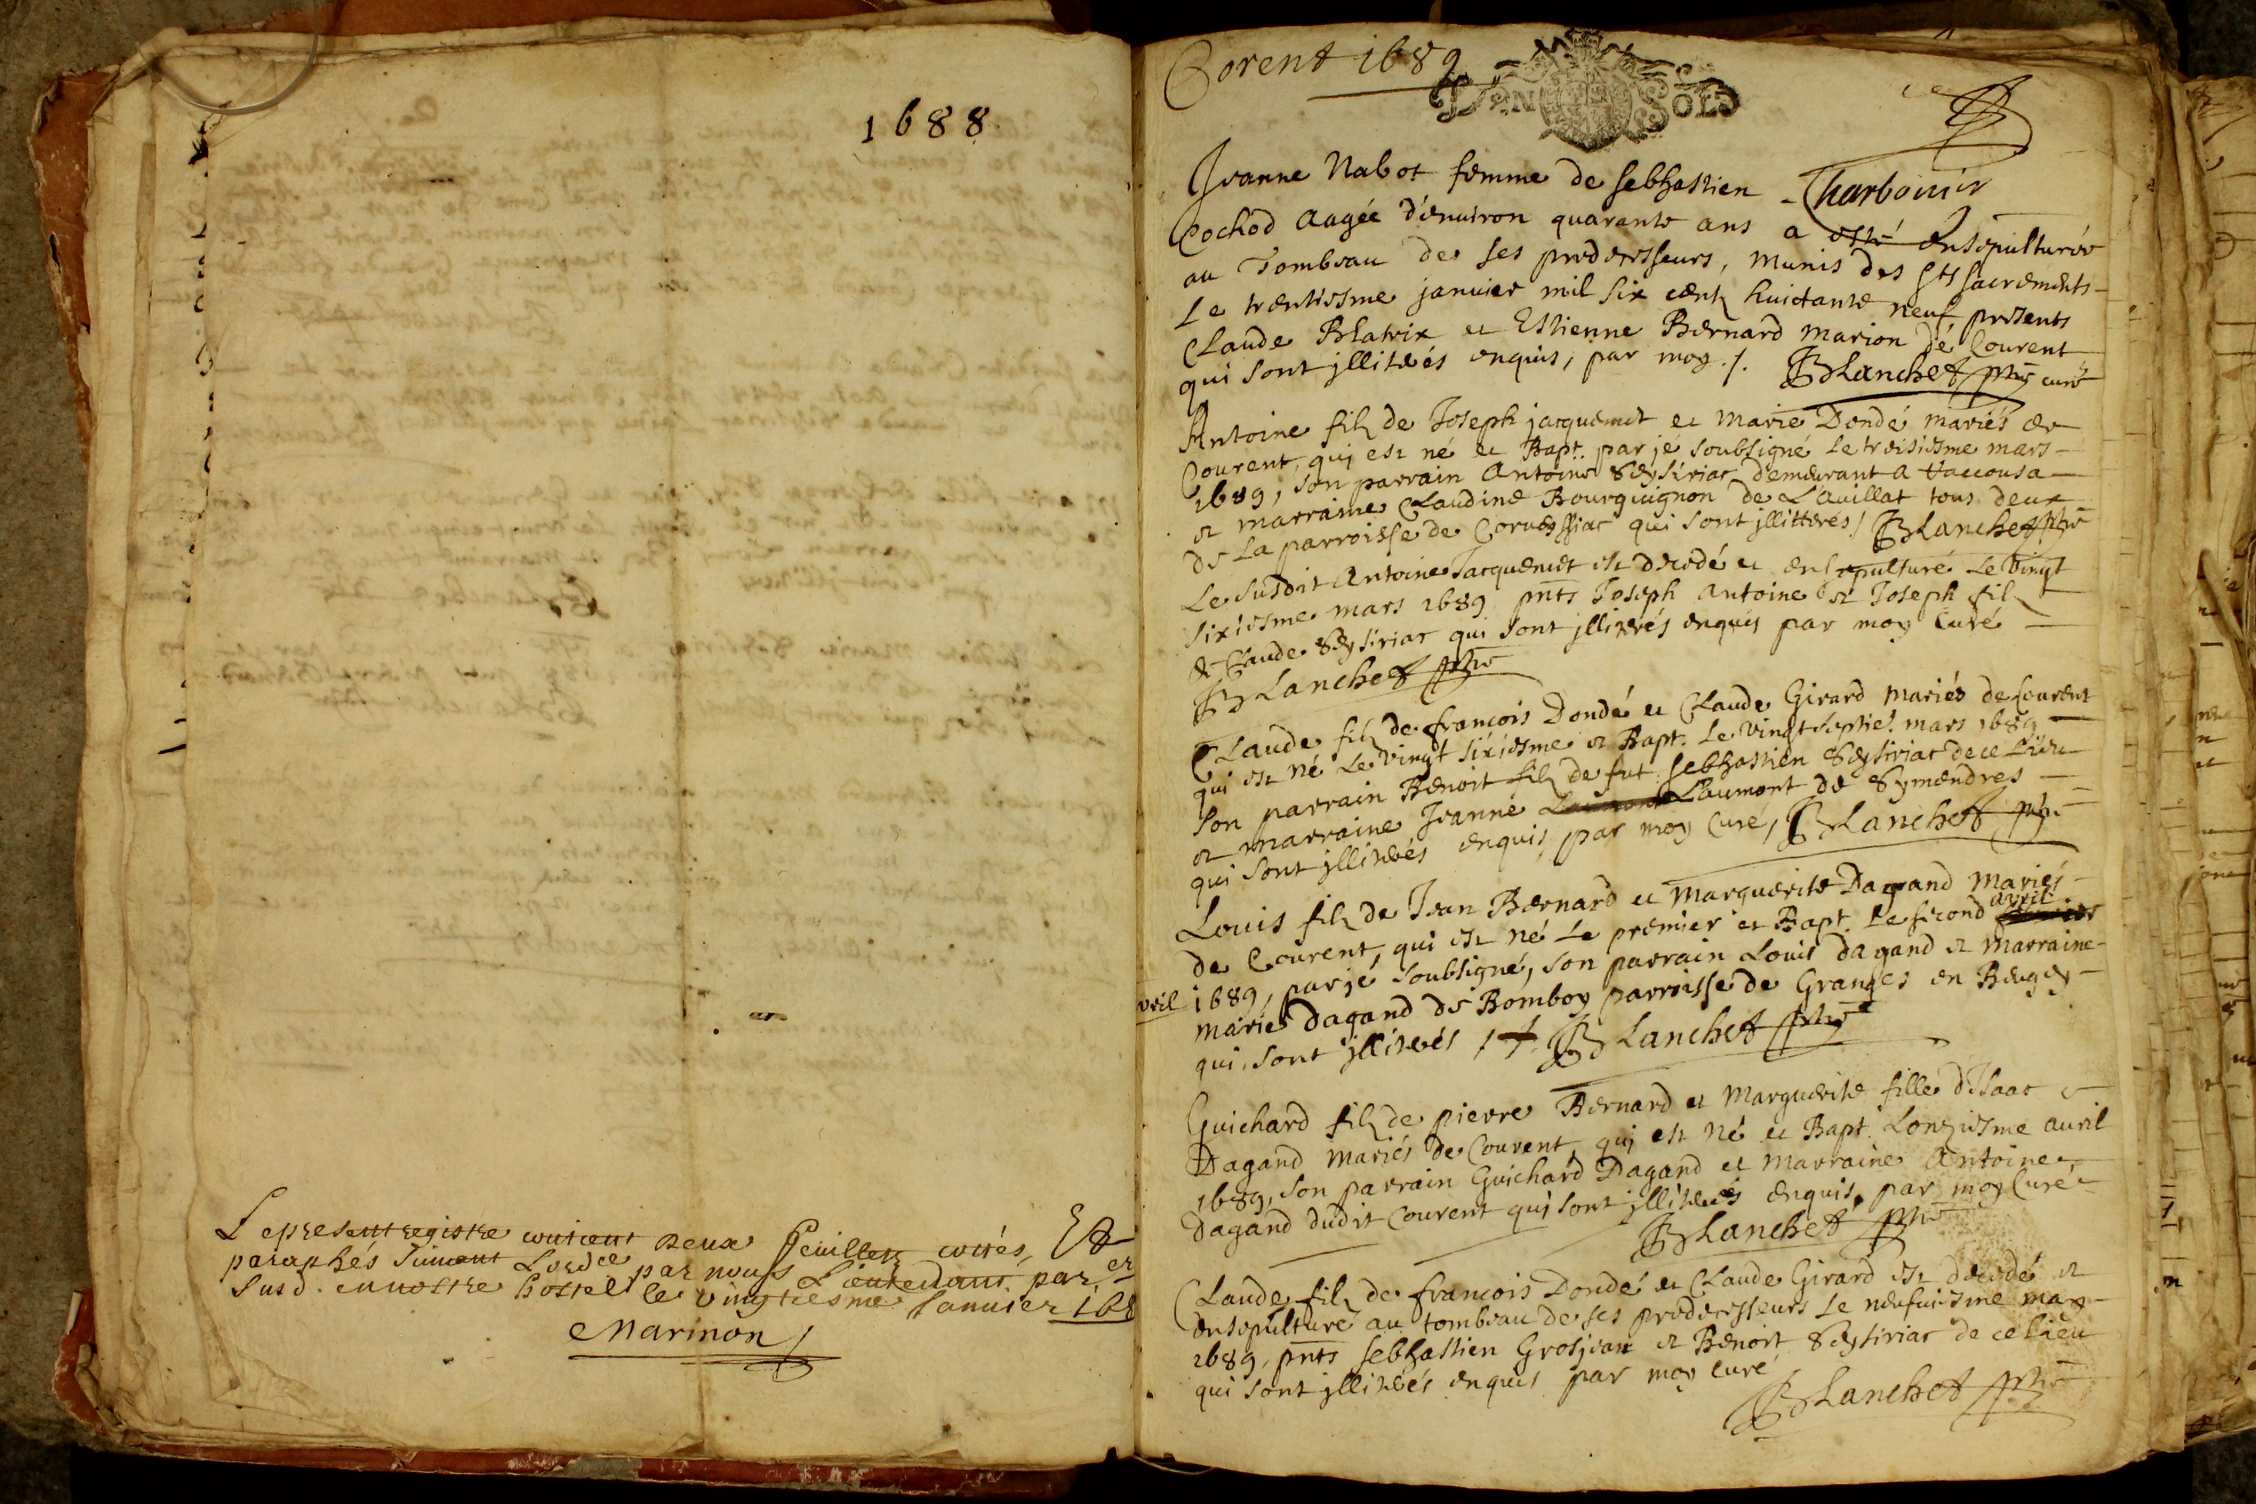 1688
Le present registre contient deux feuillets cottés, Et
paraphés suivant L'ordce par nous Lieutenant par.er
susd. en nostre hostel le vingtiesme Januier 168
Marinon
Corent 1689
UN SOL
Jeanne Nabot femme de sebhastien Charbonier
Cochod aagée d'enuiron quarante ans a esté ensepulturée
au Tombeau de ses predecesseurs, munis des sts sacrements
Le trentiesme januier mil six centz huictante neuf presents
Claude Blatrix et Estienne Bernard marion de Courent
qui sont illiterés enquis, par moy ./. Blanchet ptre curé
Antoine filz de Joseph jacquemet et marie Dondé mariés de
Courent, qui est né et Bapt. par je soubsigné le troisiesme mars
1689, son parrain Antoine Seysiriat demeurant a
et marraine Claudine Bourguignon de Lauillat tous deux
de La parroisse de qui sont illitterés / Blanchet ptre
Le susdit Antoine Jacquemet est decedé et ensepulturé le vingt
sixiesme mars 1689 pnts Joseph Antoine et Joseph fil
de Claude Seysiriat qui sont illiterés enquis par moy Curé
Blanchet ptre
Claude filz de françois Dondé et Claude Girard mariés de Courent
qui est né le vingt sixiesme et Bapt. le vingt septie. mars 1689
son parrain Benoit filz de fut sebhastien Seysiriat de ce Lieu
et marraine Jeanne Laumont de Symandres
qui sont illiterés enquis par moy Curé, Blanchet ptre
Louis filz de Jean Bernard et marguerite Dagand mariés
de Courent, qui est né le premier et Bapt. le second avril
vril 1689, par je soubsigné, son parrain Louis Dagand et marraine
marie Dagand de Bomboy parroisse de Granges en Beugey
qui sont illiterés / Blanchet ptre
Guichard filz de pierre Bernard et marguerite fille d'Isaac
Dagand mariés de Courent, qui est né et Bapt. L'onziesme auril
1689, son parrain Guichard Dagand et marraine Antoine
Dagand dudit Courent qui sont illiterés enquis, par moy Curé
Blanchet ptre
Claude filz de françois Dondé et Claude Girard est decedé et
ensepulturé au tombeau de ses predecesseurs le neufuiesme may
1689, pnts sebhastien Grosjean et Benoit Seysiriat de ce lieu
qui sont illiterés enquis par moy curé
Blanchet ptre